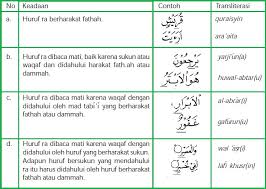 No Keadaan Contoh Transliterasi
a. Huruf ra berharakat fathah. قُرَيْشٍ quraisyin
أَرَءَيْتَ ara'aita
b. Huruf ra dibaca mati, baik karena sukun atau يَرْجِعُونَ yarji'ūn(a)
waqaf dan didahului harakat fath.ah atau
dammah. هُوَ الْأَبْتَرُ huwal-abtar(u)
c. Huruf ra dibaca mati karena waqaf dengan
didahului oleh mad tabi'i yang berharakat الْأَبْرَارِ al-abrār(i)
fathah atau dammah. غَفُورٌ gafūrun(u)
d. Huruf ra dibaca mati karena waqaf dengan
didahului oleh huruf yang berharakat sukun. وَالْعَصْرِ
Adapun huruf bersukun yang mendahului لَفِي خُسْرٍ lafi khusr(in)
ra itu harus didahului oleh huruf berharakat
fathah atau dammah.